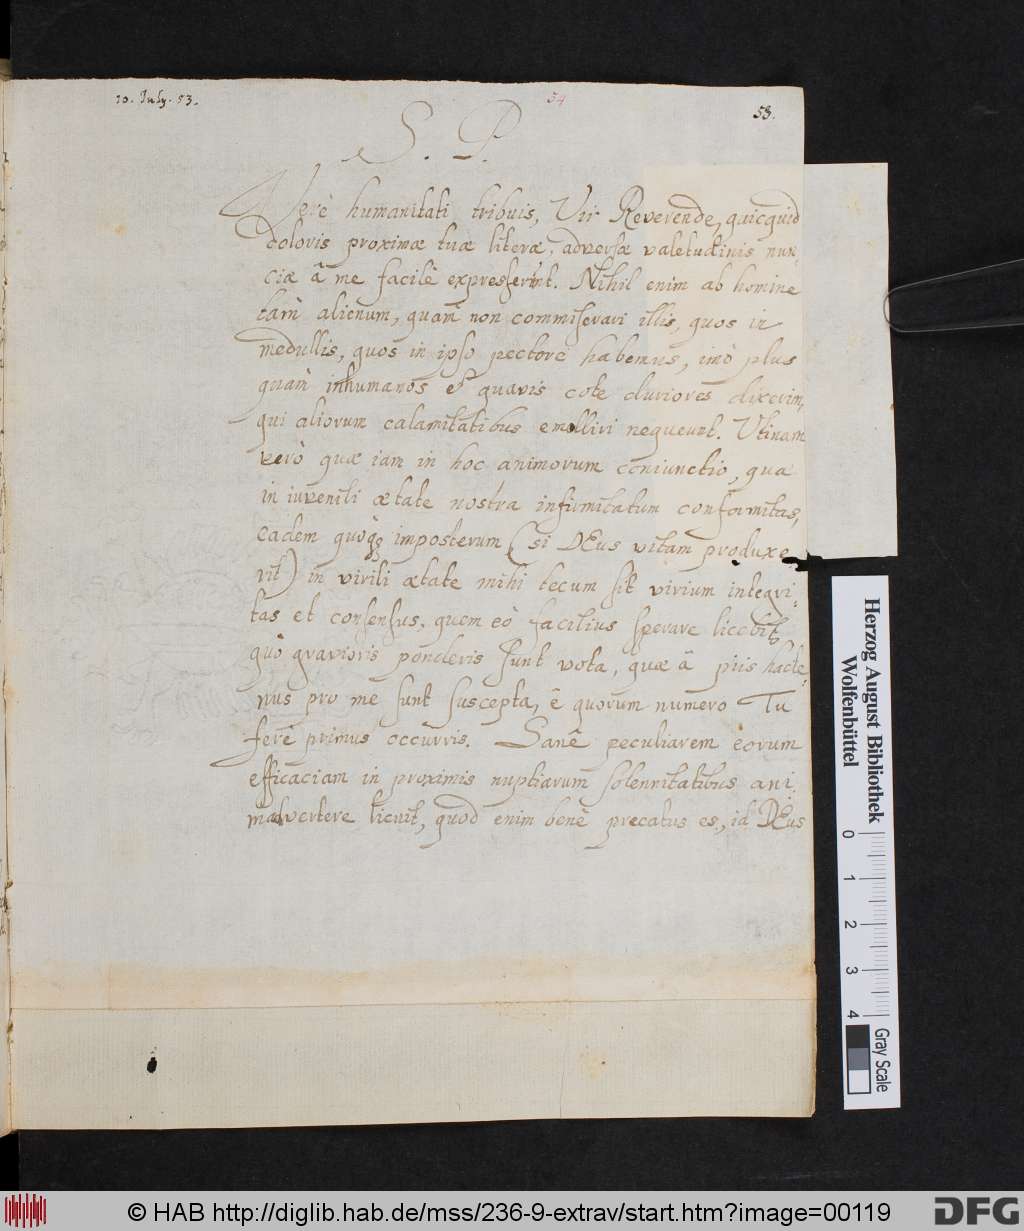 10. July. 53.
54
53.
S. P.
Verè humanitati tribuis, Vir Reverende, quicquid
doloris proximæ tuæ literæ, adversæ valetudinis nun-
ciæ â me facilè expresserint. Nihil enim ab homine
tam̀ alienum, quam̀ non commiserari illis, quos in
medullis, quos in ipso pectore habemus, imò plus
quam̀ inhumanos et quavis cote duriores dixerim,
qui aliorum calamitatibus emolliri nequeunt. Utinam
verò quæ iam in hoc animorum coniunctio, quæ
in iuvenili ætate nostra infirmitatum conformitas,
eadem quòq; imposterum (si DEus vitam produxe
rit) in virili ætate mihi tecum sit virium integri-
tas et consensus, quem eò facilius sperare licebit,
quò gravioris ponderis sunt vota, quæ â piis hacte-
nus pro me sunt suscepta, ê quorum numero Tu
ferè primus occurris. Sanê peculiarem eorum
efficaciam in proximis nuptiarum solennitatibus ani-
madvertere licuit, quod enim benè precatus es, id DEus
Herzog August Bibliothek
Wolfenbüttel
0 1 2 3 4
Gray Scale
© HAB http://diglib.hab.de/mss/236-9-extrav/start.htm?image=00119
DFG